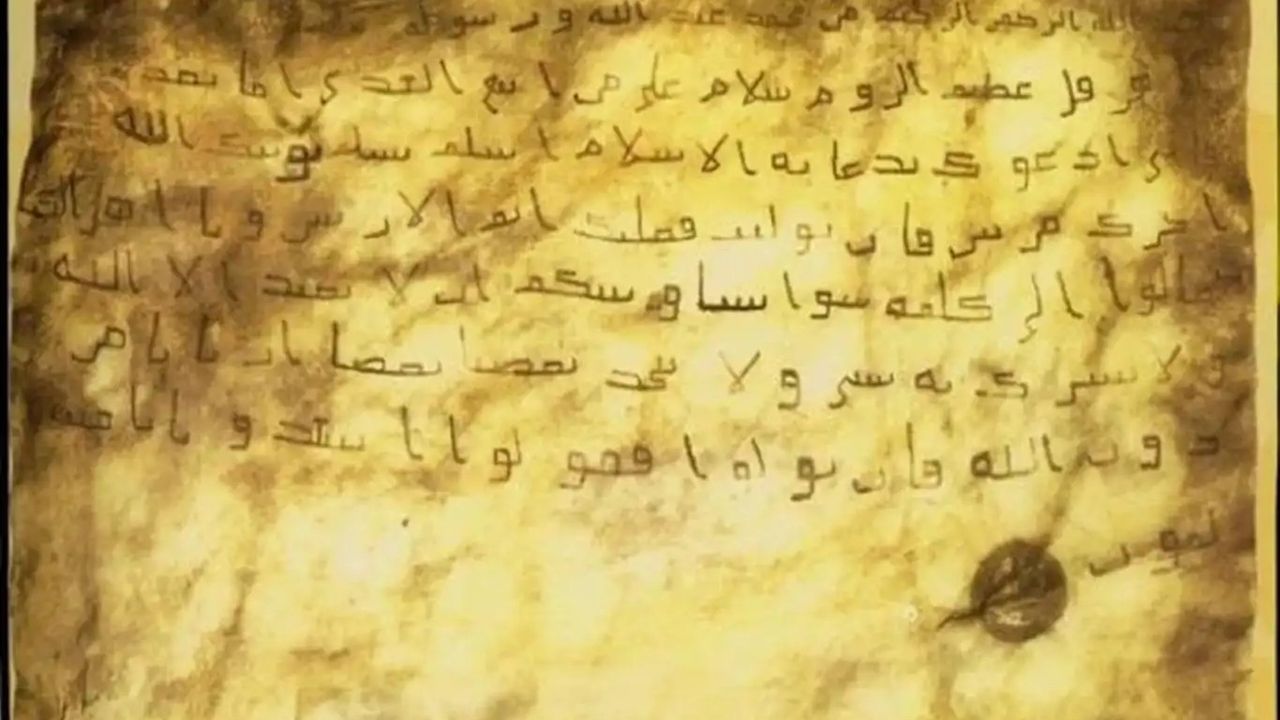 بسم الله الرحمن الرحيم من محمد عبد الله ورسوله
هرقل عظيم الروم سلام على من اتبع الهدى اما بعد
ى ادعوك بدعايه الاسلام اسلم تسلم يوتك الله
اجرك مرتين فان توليت فعليك اثم الاريسين ويا اهل الكتا
تعالوا الى كلمه سوا بيننا وبينكم ان لا نعبد الا الله
ولا نشرك به شى ولا نتخذ بعضنا بعضا اربابا من
دون الله فان تولوا فقولوا اشهدوا بانا مس
لمون